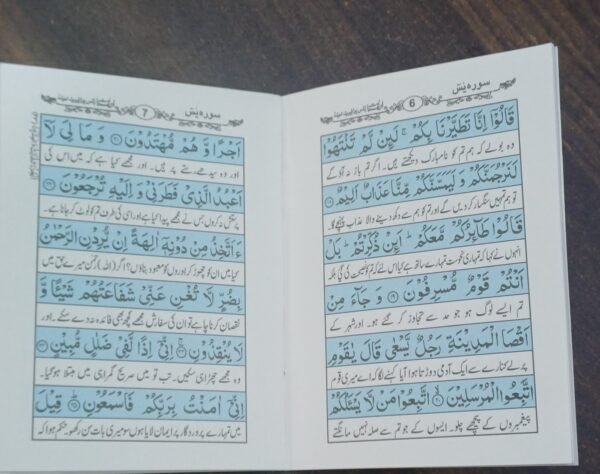 سورہ یٰسٓ
6
قَالُوْٓا اِنَّا تَطَيَّرْنَا بِكُمْ ۚ لَئِنْ لَّمْ تَنْتَهُوْا
وہ بولے کہ ہم تم کو نامبارک دیکھتے ہیں۔ اگر تم باز نہ آؤ گے
لَنَرْجُمَنَّكُمْ وَ لَيَمَسَّنَّكُمْ مِّنَّا عَذَابٌ اَلِيْمٌ ۝۱۸
تو ہم تمہیں سنگسار کر دیں گے اور تم کو ہم سے دکھ دینے والا عذاب پہنچے گا۔
قَالُوْا طَآئِرُكُمْ مَّعَكُمْ ؕ اَئِنْ ذُكِّرْتُمْ ؕ بَلْ
انہوں نے کہا کہ تمہاری نحوست تمہارے ساتھ ہے کیا اس لئے کہ تم کو نصیحت کی گئی بلکہ
اَنْتُمْ قَوْمٌ مُّسْرِفُوْنَ ۝۱۹ وَ جَآءَ مِنْ
تم ایسے لوگ ہو جو حد سے تجاوز کر گئے ہو۔ اور شہر کے
اَقْصَا الْمَدِيْنَةِ رَجُلٌ يَّسْعٰى قَالَ يٰقَوْمِ
پرلے کنارے سے ایک آدمی دوڑتا ہوا آیا کہنے لگا کہ اے میری قوم
اتَّبِعُوا الْمُرْسَلِيْنَ ۝۲۰ اتَّبِعُوْا مَنْ لَّا يَسْئَلُكُمْ
پیغمبروں کے پیچھے چلو۔ ایسوں کے جو تم سے صلہ نہیں مانگتے
سورہ یٰسٓ
7
اَجْرًا وَّ هُمْ مُّهْتَدُوْنَ ۝۲۱ وَ مَا لِيَ لَآ
اور وہ سیدھے رستے پر ہیں۔ اور مجھے کیا ہے کہ میں اس کی
اَعْبُدُ الَّذِيْ فَطَرَنِيْ وَ اِلَيْهِ تُرْجَعُوْنَ ۝۲۲
پرستش نہ کروں جس نے مجھے پیدا کیا ہے اور اسی کی طرف تم کو لوٹ کر جانا ہے۔
ءَاَتَّخِذُ مِنْ دُوْنِهٖٓ اٰلِهَةً اِنْ يُّرِدْنِ الرَّحْمٰنُ
کیا میں ان کو چھوڑ کر اوروں کو معبود بناؤں؟ اگر (اللہ) رحمٰن میرے حق میں
بِضُرٍّ لَّا تُغْنِ عَنِّيْ شَفَاعَتُهُمْ شَيْئًا وَّ
نقصان کرنا چاہے تو ان کی سفارش مجھے کچھ بھی فائدہ نہ دے سکے۔ اور
لَا يُنْقِذُوْنِ ۝۲۳ اِنِّيْٓ اِذًا لَّفِيْ ضَلٰلٍ مُّبِيْنٍ ۝۲۴
وہ مجھے چھڑا ہی سکیں۔ تب تو میں صریح گمراہی میں مبتلا ہو گیا۔
اِنِّيْٓ اٰمَنْتُ بِرَبِّكُمْ فَاسْمَعُوْنِ ۝۲۵ قِيْلَ
میں تمہارے پروردگار پر ایمان لایا ہوں سو میری بات سن رکھو۔ حکم ہوا کہ